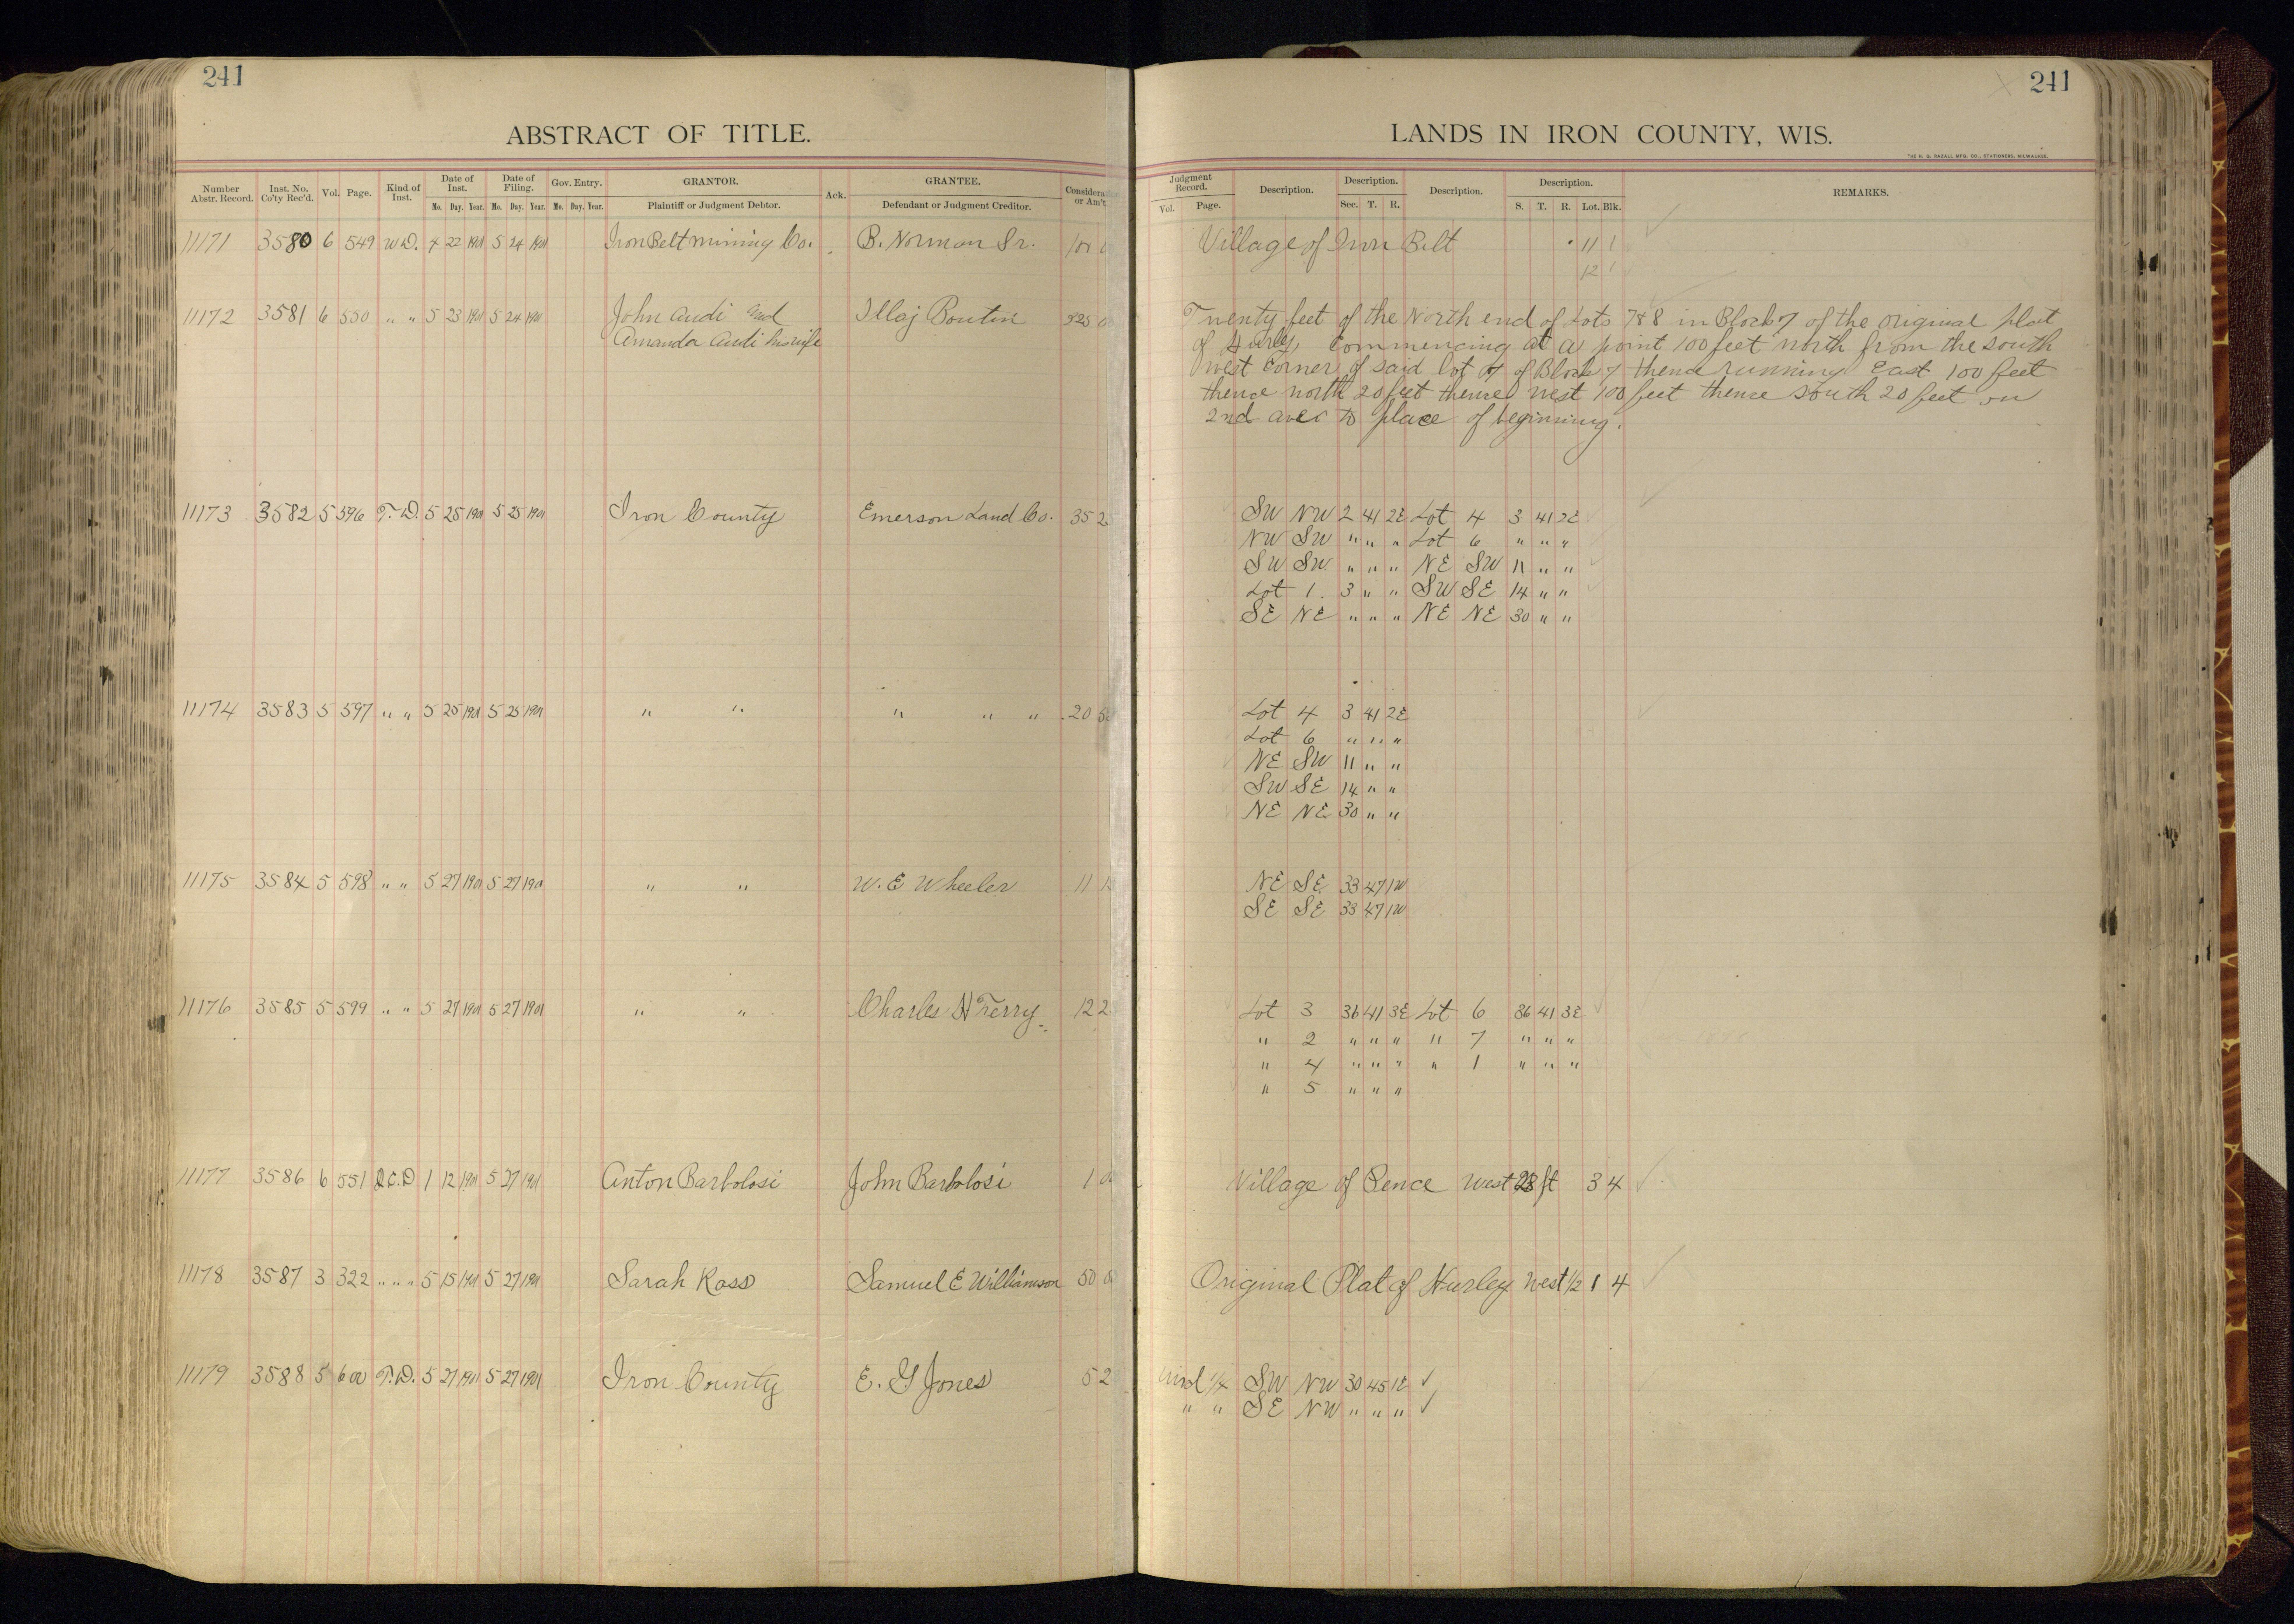 241
ABSTRACT OF TITLE.
Number Abstr. Record. Inst. No. Co'ty Rec'd. Vol. Page. Kind of Inst. Date of Inst. Date of Filing. Gov. Entry. GRANTOR. Ack. GRANTEE. Considera or Am't
Mo. Day. Year. Mo. Day. Year. Mo. Day. Year. Plaintiff or Judgment Debtor. Defendant or Judgment Creditor.
11171 3580 6 549 W.D. 4 22 1901 5 24 1901 Iron Belt Mining Co. B. Norman Sr. 100
11172 3581 6 550 " " 5 23 1901 5 24 1901 John Audi and Boutin 325 0
Amanda Audi his wife
11173 3582 5 596 T.D. 5 25 1901 5 25 1901 Iron County Emerson Land Co. 35 2
11174 3583 5 597 " " 5 25 1901 5 25 1901 " " " " " 20 5
11175 3584 5 598 " " 5 27 1901 5 27 1901 " " W. E Wheeler 11 1
11176 3585 5 599 " " 5 27 1901 5 27 1901 " " Charles H Ferry 12 2
11177 3586 6 551 Q.C.D 1 12 1901 5 27 1901 Anton Barbolosi John Barbolosi 1 00
11178 3587 3 322 " " " 5 15 1901 5 27 1901 Sarah Ross Samuel E Williamson 50 00
11179 3588 5 600 T.D. 5 27 1901 5 27 1901 Iron County E. G Jones 5 2
241
LANDS IN IRON COUNTY, WIS.
THE H. G. RAZALL MFG. CO., STATIONERS, MILWAUKEE.
Judgment Record. Description. Description. Description. Description. REMARKS.
Vol. Page. Sec. T. R. S. T. R. Lot. Blk.
Village of Iron Belt 11 1
12 1
Twenty feet of the North end of Lots 7 & 8 in Block 7 of the original plat
of Hurley, Commencing at a point 100 feet north from the south
west Corner of said lot 7 of Block 7 thence running East 100 feet
thence north 20 feet thence west 100 feet thence south 20 feet on
2nd ave to place of beginning.
SW NW 2 41 2E Lot 4 3 41 2E
NW SW " " " Lot 6 " " "
SW SW " " " NE SW 11 " "
Lot 1. 3 " " SW SE 14 " "
SE NE " " " NE NE 30 " "
Lot 4 3 41 2E
Lot 6 " " "
NE SW 11 " "
SW SE 14 " "
NE NE 30 " "
NE SE 33 47 1W
SE SE 33 47 1W
Lot 3 36 41 3E Lot 6 36 41 3E
" 2 " " " " 7 " " "
" 4 " " " " 1 " " "
" 5 " " "
Village of Pence West 28 ft 3 4
Original Plat of Hurley West 1/2 1 4
Und 1/4 SW NW 30 45 1E ✓
" " SE NW " " " ✓